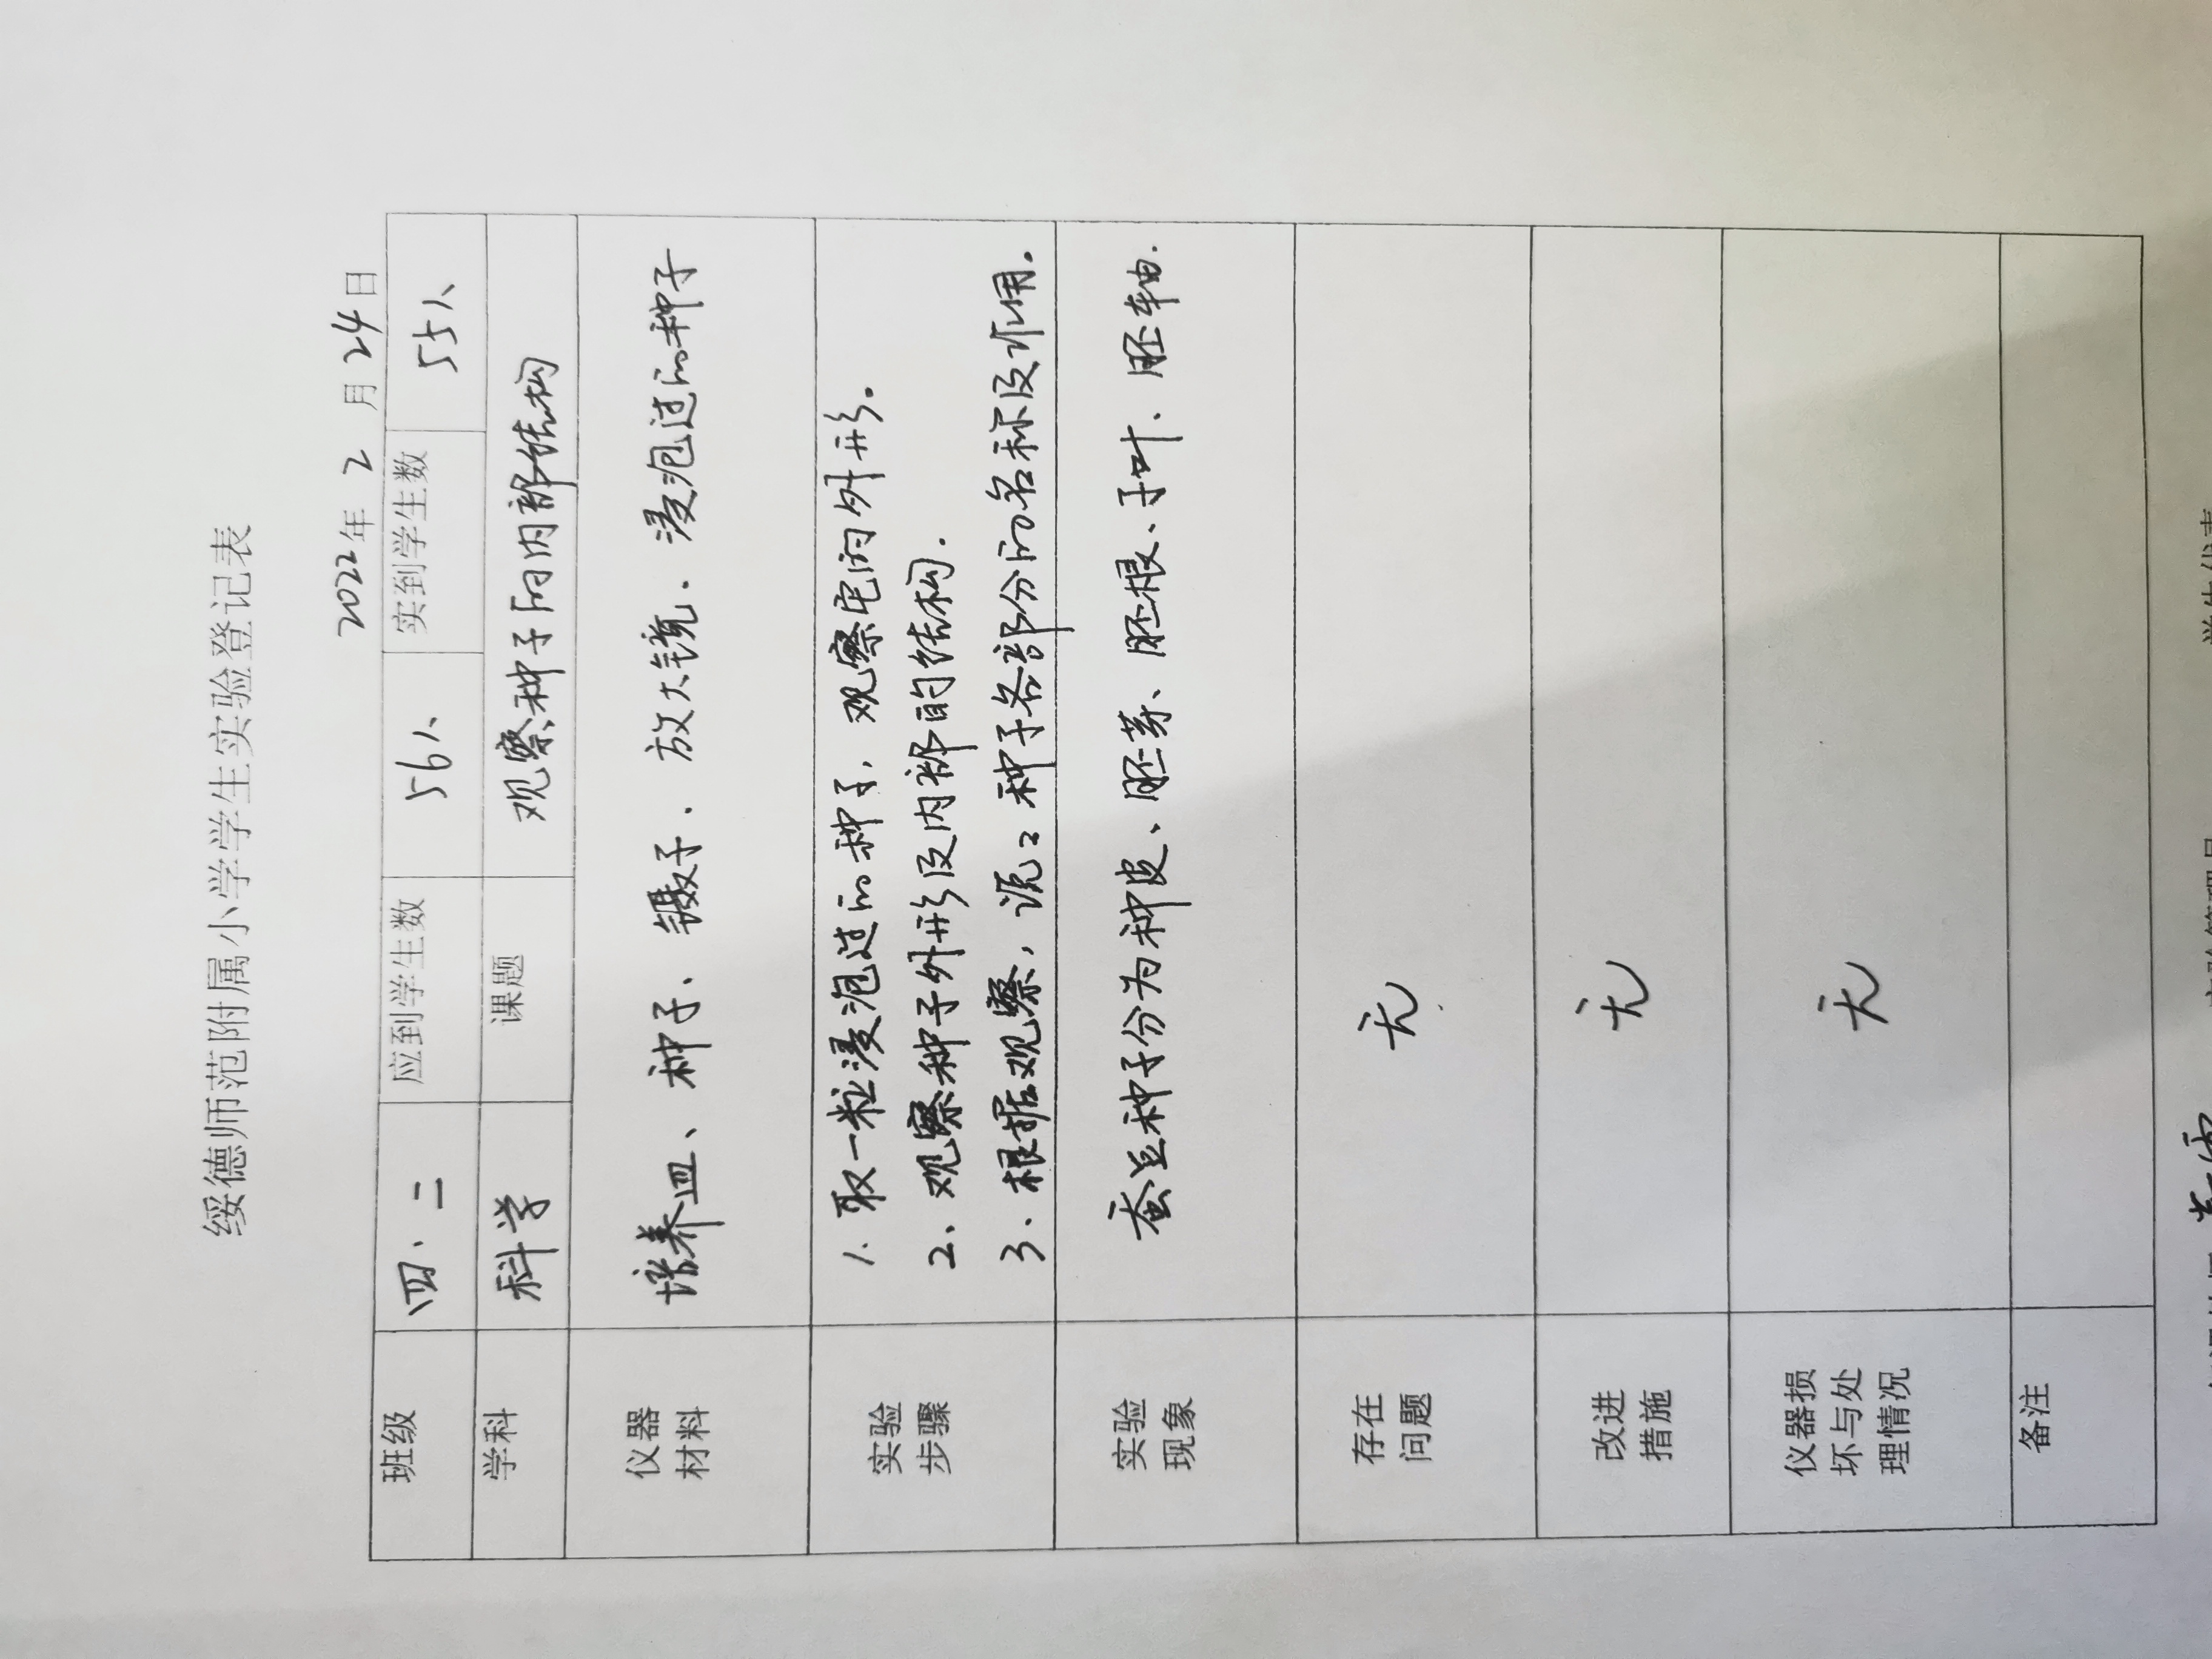 绥德师范附属小学学生实验登记表
2022年 2 月 24日
班级 四、二 应到学生数 56人 实到学生数 55人
学科 科学 课题 观察种子的内部结构
仪器
材料
培养皿、种子、镊子、放大镜、浸泡过的种子
实验
步骤
1. 取一粒浸泡过的种子，观察它的外形。
2、观察种子外形及内部的结构.
3、根据观察，说々种子各部分的名称及作用.
实验
现象
蚕豆种子分为种皮、胚芽、胚根、子叶、胚轴.
存在
问题
无
改进
措施
无
仪器损
坏与处
理情况
无
备注